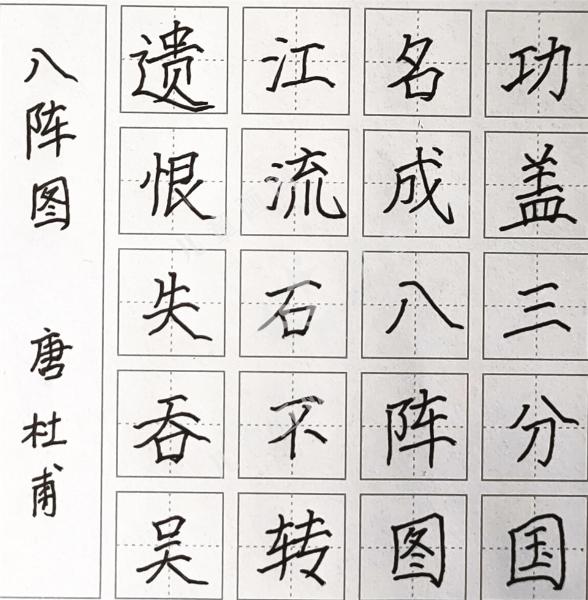 功盖三分国
名成八阵图
江流石不转
遗恨失吞吴
八阵图 唐 杜甫